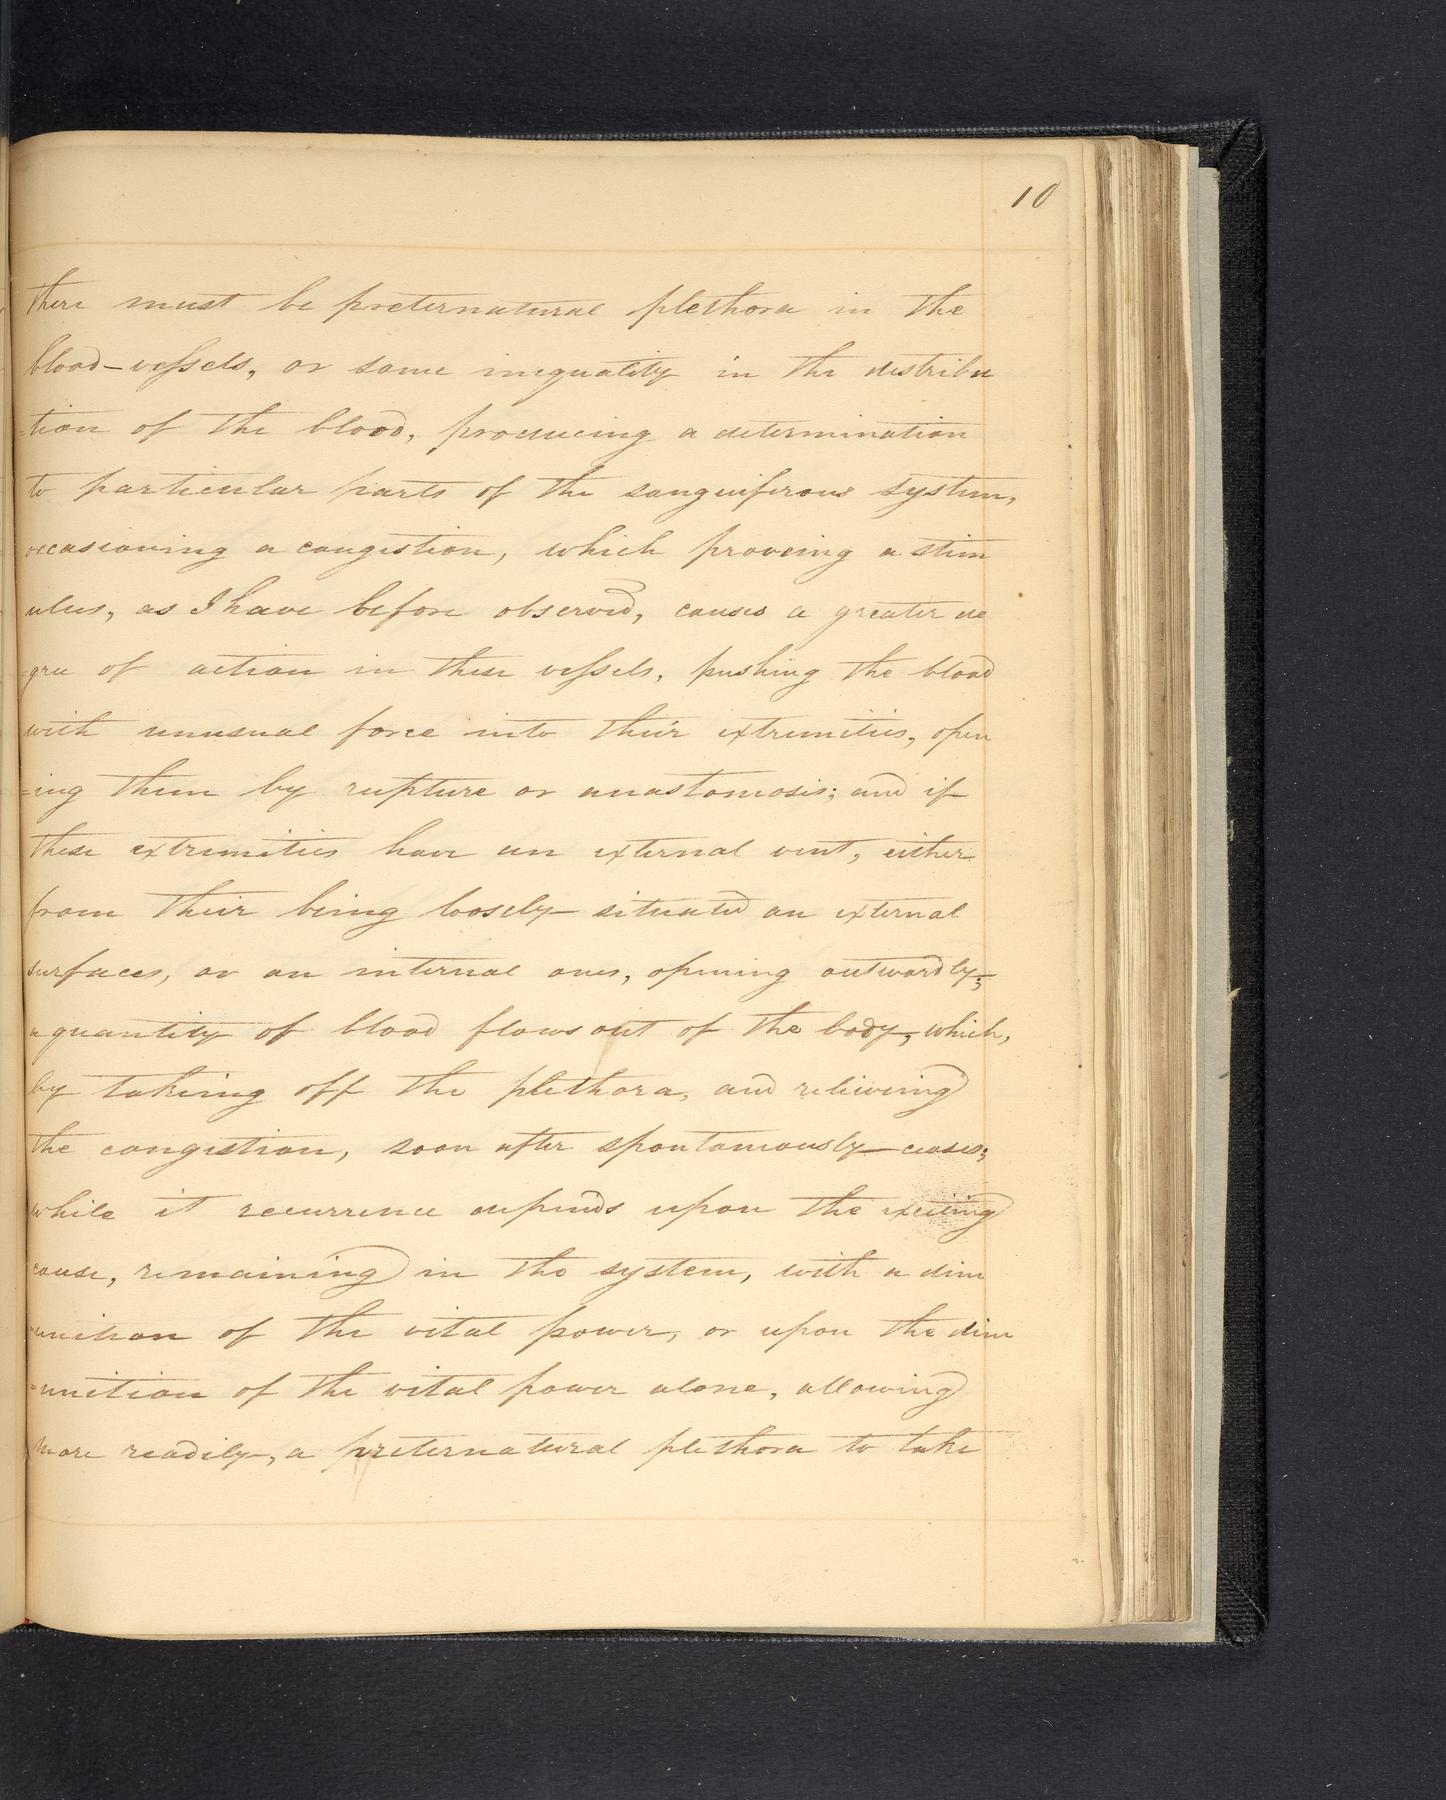 10
there must be preternatural plethora in the
blood-vessels, or some inequality in the distribu
=tion of the blood, producing a determination
to particular parts of the sanguiferous system,
occasioning a congestion, which proveing a stim
ulus, as I have before observed, causes a greater de
=gree of action in these vessels, pushing the blood
with unusual force into their extremities, open
=ing them by rupture or anastomosis; and if
these extremities have an external vent, either
from their being loosely situated on external
surfaces, or on internal ones, opening outwardly;
a quantity of blood flows out of the body, which,
by takeing off the plethora, and relieveing
the congestion, soon after spontaneously ceases;
while it recurrence depends upon the exciting
cause, remaining in the system, with a dim
=unition of the vital power, or upon the dim
=unition of the vital power alone, allowing
more readily, a preternatural plethora to take